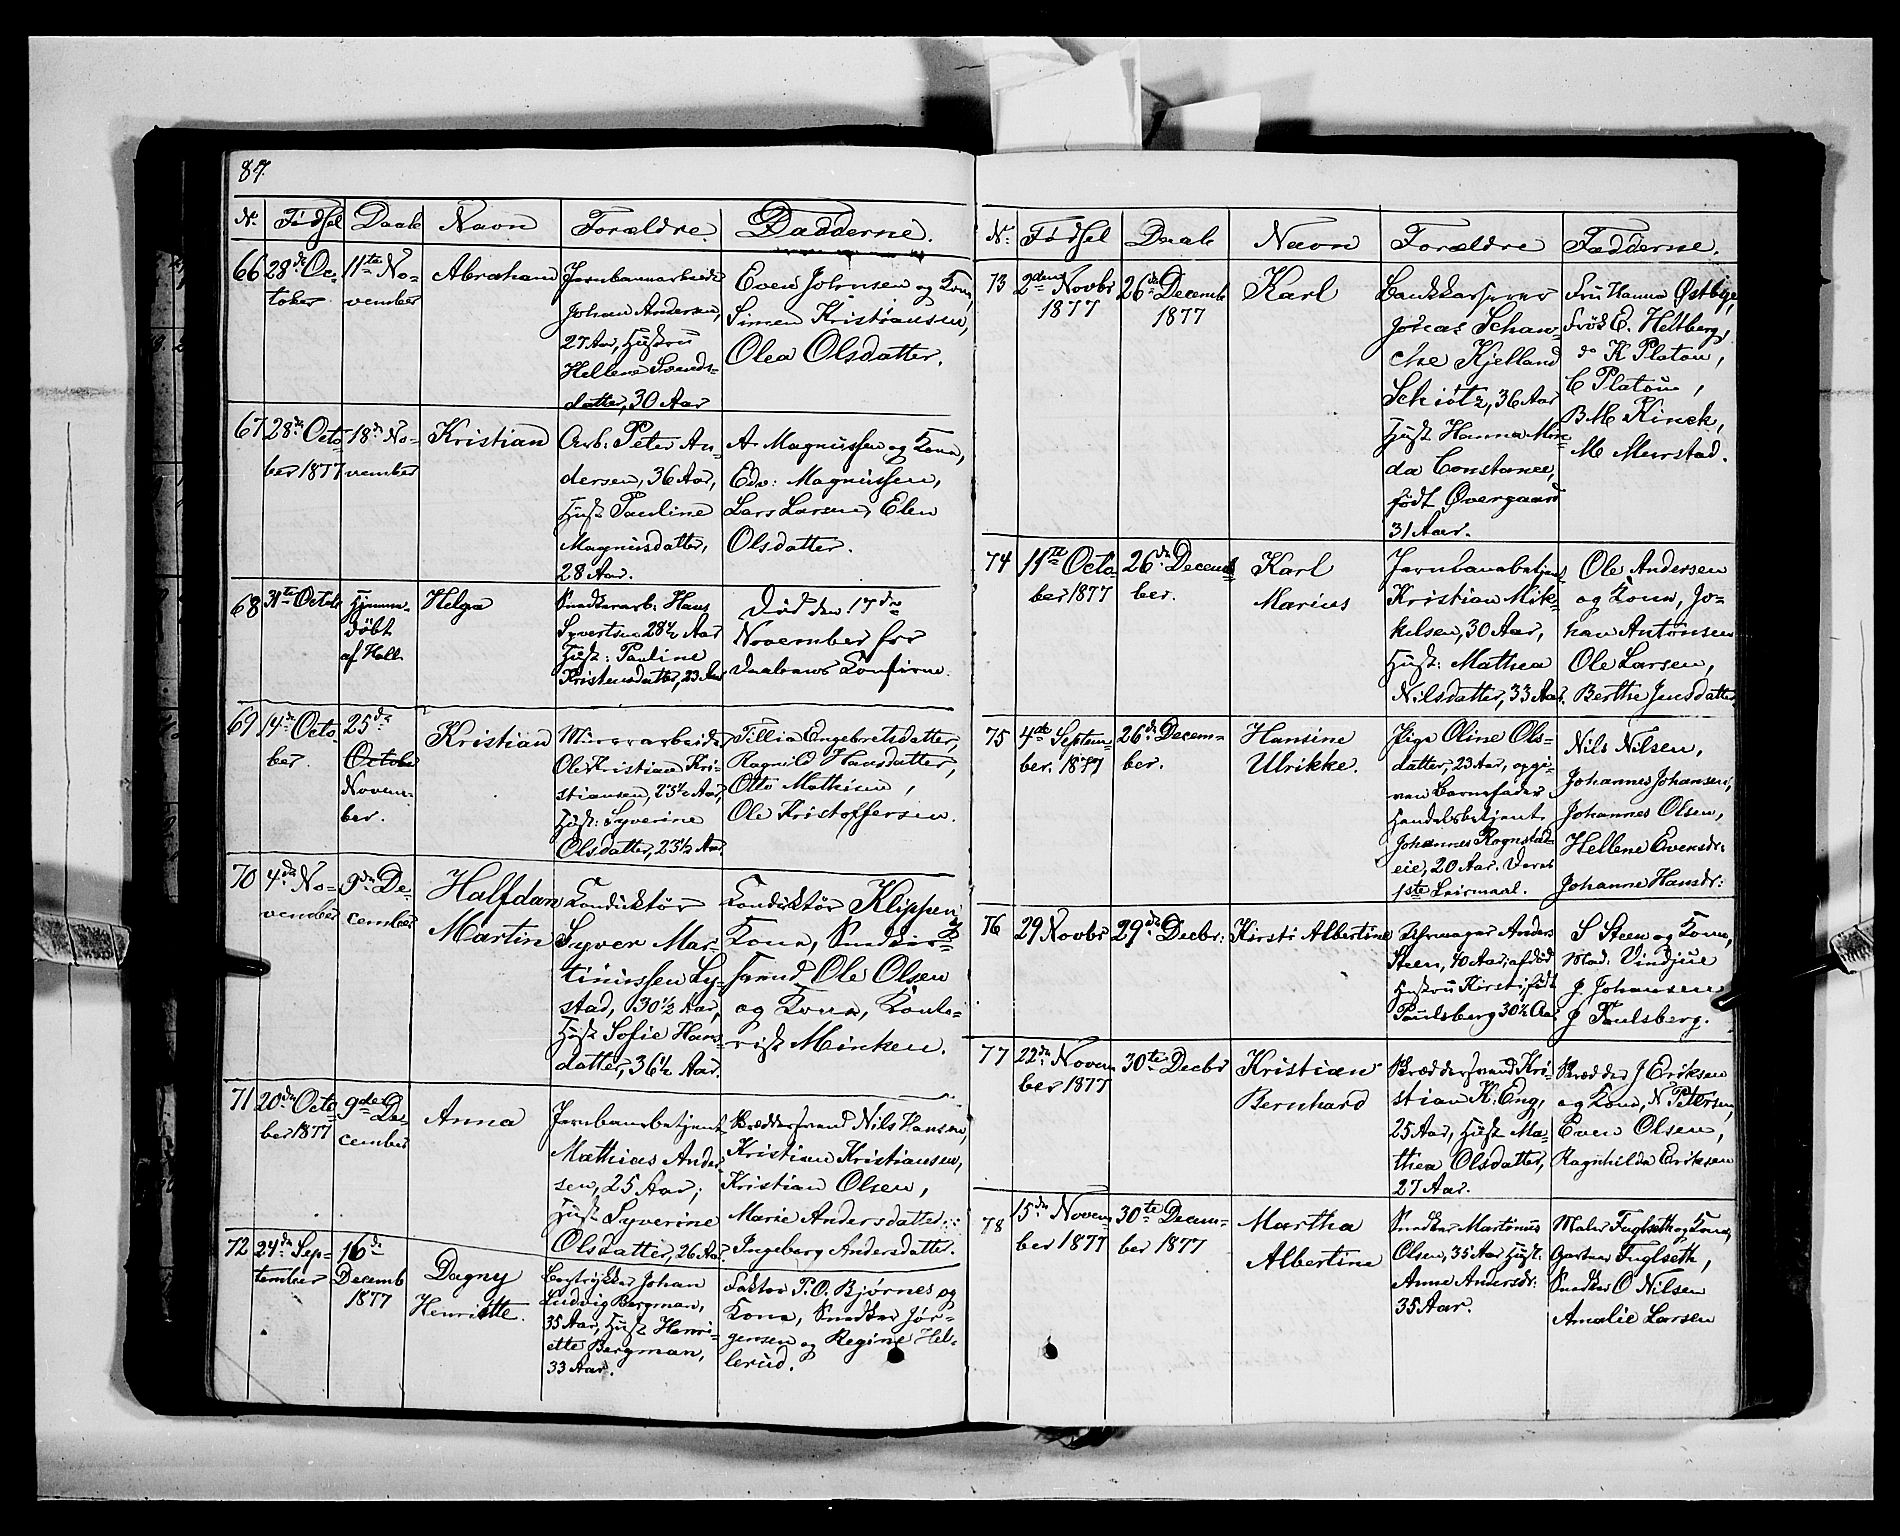 87.
N. Fødsel Daab Navn Forældre. Fadderne.
66 28de Oc-
tober
11te No-
vember
Abraham
Jernbanearbeider
Johan Andersen,
27 Aar, Hustru
Hellene Svends-
datter, 30 Aar
Even Johnsen og Kone,
Simen Kristiansen,
Olea Olsdatter.
67 28de Octo-
ber 1877
18de No-
vember
Kristian
Arb: Peter An-
dersen, 36 Aar,
Hust Pauline
Magnusdatter,
28 Aar.
A. Magnussen og Kone,
Edv: Magnussen,
Lars Larsen, Elen
Olsdatter.
68 31te Octob
Hjemme-
døbt
af Holl
Helga
Snedkerarb: Hans
Syvertsen 28½ Aar
Hust: Pauline
Kristensdatter, 23 Aar
Død den 17de
November før
Daabens Confirm.
69 14de Octo-
ber.
25de
October
Novem-
ber.
Kristian
Murerarbeider
Ole Kristian Kri-
stiansen, 25½ Aar,
Hust: Syverine
Olsdatter, 23½ Aar.
Tillia Engebretsdatter,
Ragnild Hansdatter,
Otto Mathisen,
Ole Kristoffersen.
70 4de No-
vember
9de De-
cember
Halfdan
Martin
Konduktør
Syver Mar-
tinussen Ly-
stad, 30½ Aar,
Hust Sofie Hans-
datter, 36½ Aar.
Konduktør Klippen og
Kone, Snedker-
svend Ole Olsen
og Kone, Konto-
rist Minken.
71 20de Octo-
ber 1877
9de De-
cember
Anna
Jernbanebetjent
Mathias Ander-
sen, 25 Aar;
Hust Syverine
Olsdatter, 26 Aar.
Skræddersvend Nils Hansen,
Kristian Kristiansen,
Kristian Olsen,
Marie Andersdatter:
Ingeborg Andersdatter.
72 24de Sep-
tember
16de
Decemb
1877
Dagny
Henriette.
Bogtrykker Johan
Ludvig Bergman,
35 Aar, Hust Henri-
ette Bergman,
33 Aar.
Faktor T. O. Bjørnes og
Kone, Snedker Jør-
gensen og Regine Hel-
lerud.
N: Fødsel Daab Navn Forældre Fadderne.
73 2den Novbr
1877
26de Decemb
1877
Karl
Bankkasserer
Joseas Schan-
che Kjelland
Schiøtz, 36 Aar
Hust Hanna Min-
da Constance,
født Overgaard
31 Aar.
Fru Hanna Østbye,
Frøk E. Heltberg,
do K Platou,
C Platou,
B M Kinck,
M Murstad.
74 11te Octo-
ber 1877
26de Decem-
ber.
Karl
Marius
Jernbanebetjent
Kristian Mik-
kelsen, 30 Aar,
Hust: Mathea
Nilsdatter, 33 Aar.
Ole Andersen
og Kone, Jo-
han Antonsen
Ole Larsen,
Berthe Jensdatter
75 4de Septem-
ber. 1877
26de Decem-
ber.
Hansine
Ulrikke.
Pige Oline Ols-
datter, 23 Aar, opgi-
ven Barnefader
Handelsbetjent
Johannes Rognstad-
eie, 20 Aar. Deres
1ste Leiermaal.
Nils Nilsen,
Johannes Johansen,
Johannes Olsen,
Hellene Evensdr:
Johanne Hansdr:
76 29 Novbr
29de Decbr:
Kirsti Albertine
Uhrmager Anders
Steen, 40 Aar, afdød
Hustru Kirsti, født
Paulsberg 30½ Aar
S Steen og Kone,
Mad: Vindjue
J. Johansen
J Paulsberg.
77 22de Novem-
ber 1877
30te Decbr
Kristian
Bernhard
Skræddersvend Kri-
stian K. Eng,
25 Aar, Hust Ma-
thea Olsdatter,
27 Aar.
Skrædder J Eriksen
og Kone, N. Petersen,
Even Olsen,
Ragnhilda Eriksen
78 15de Novem-
ber 1877
30te Decem-
ber 1877
Martha
Albertine
Snedker Martinus
Olsen, 35 Aar Hust.
Anne Andersdr:
35 Aar.
Maler Fuglseth og Kone,
Garver Fuglseth,
Snedker O Nilsen
Amalie Larsen